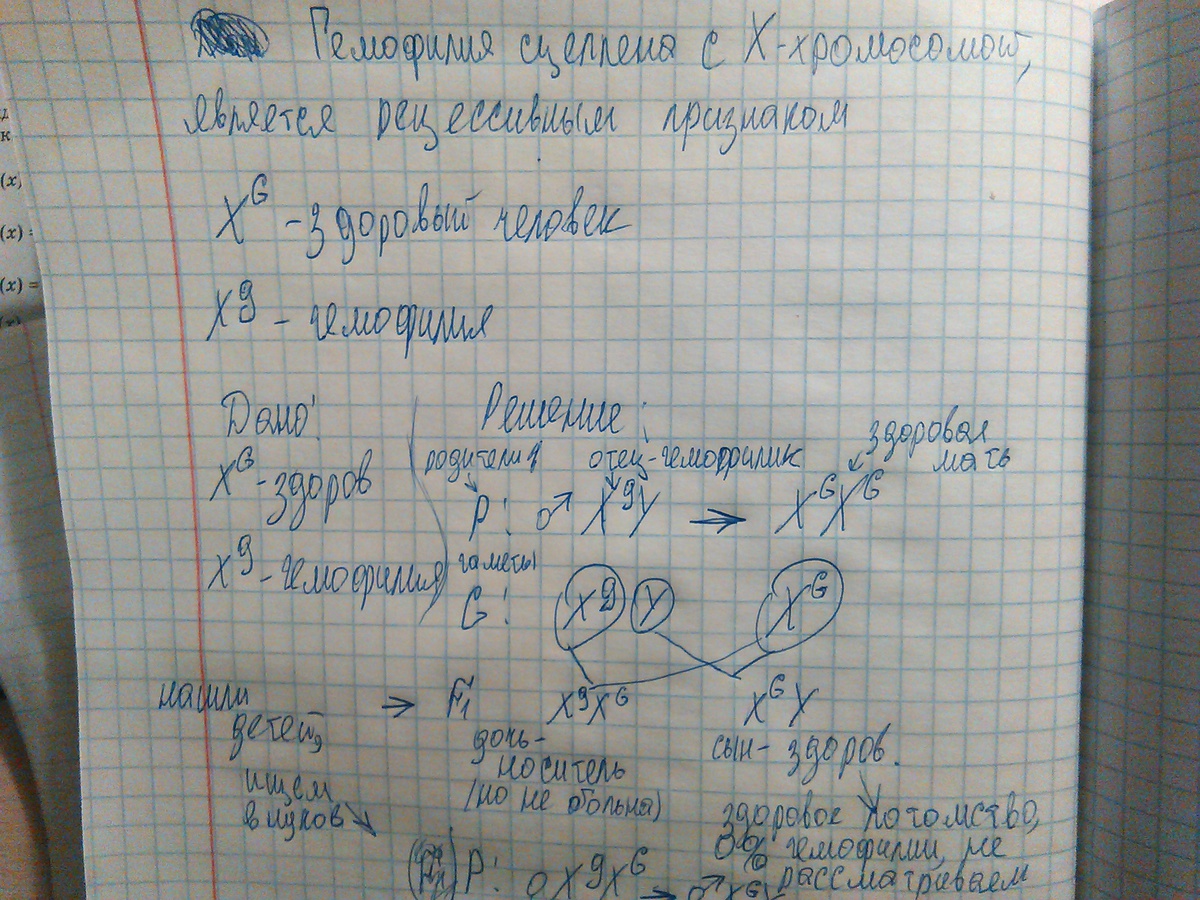 Гемофилия сцеплена с X-хромосомой,
является рецессивным признаком
X^G - здоровый человек
X^g - гемофилия
Дано:
X^G - здоров
X^g - гемофилия
Решение:
родители
отец-гемофилик
здоровая
мать
P: ♂ X^g Y → X^G X^G
гаметы
G: X^g Y X^G
нашли
детей,
ищем
внуков
→ F1 X^g X^G X^G Y
дочь-
носитель
(но не больна)
сын - здоров.
здоровое потомство,
0% гемофилии, не
рассматриваем
(F1) P: X^g X^G → ♂ X^G Y
к
(x)
(x) =
(x) =